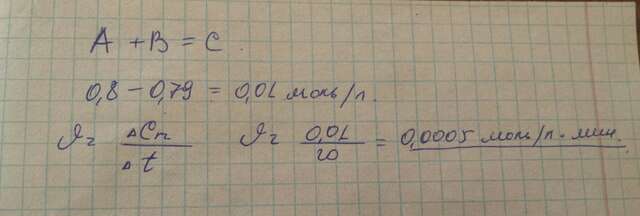 A + B = C.
0,8 – 0,79 = 0,01 моль/л.
υ = ΔCм / Δt υ = 0,01 / 20 = 0,0005 моль/л · мин.